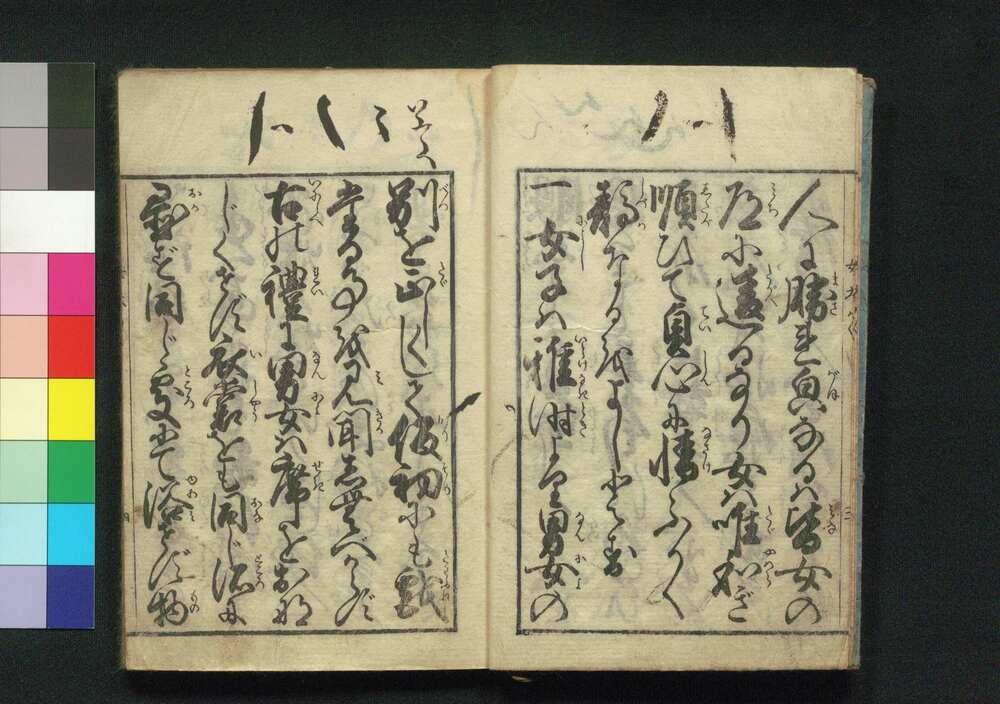 人に勝れ貞なるは皆女の
道に違へるなり女は唯和ぎ
順ひて貞心に情ふかく
静なるをよしとす
一女子は稚時より男女の
別を正しくして仮初にも戯
たる事を見聞しむべからず
古の禮に男女は席をおな
じくせず衣裳をも同じ所に
置ず同じ處にて浴せず物